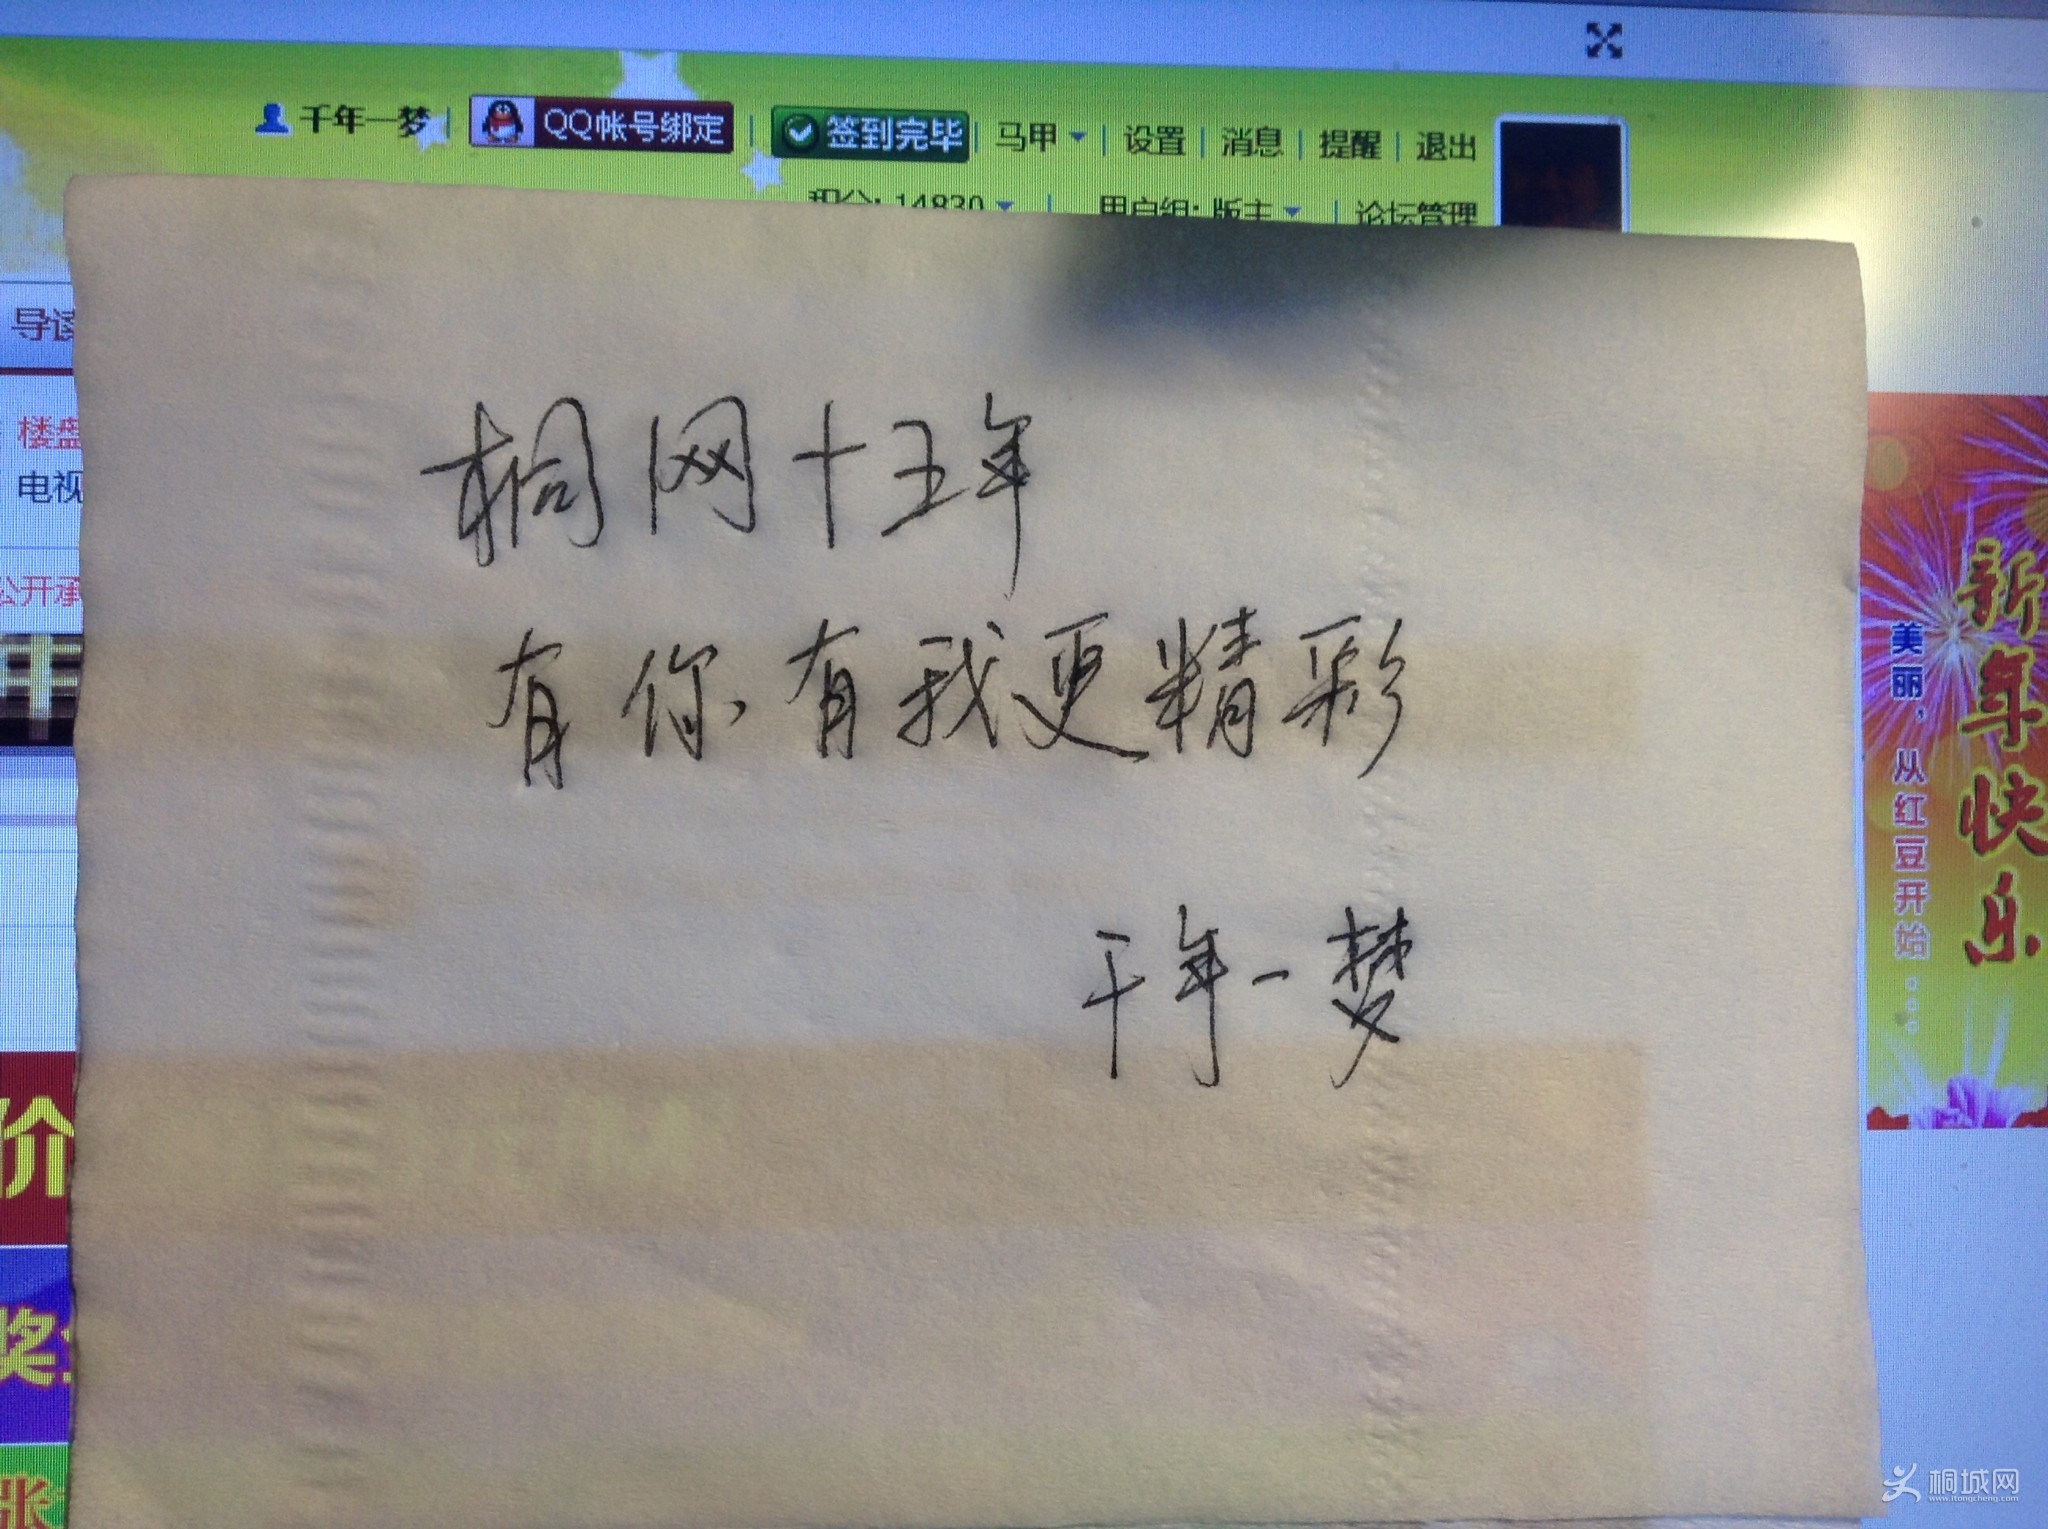 千年一梦 | QQ帐号绑定 | 签到完毕 | 马甲 | 设置 | 消息 | 提醒 | 退出
积分: 14830 | 用户组: 版主 | 论坛管理
导读
楼盘
电视
公开承
桐网十五年
有你有我更精彩
千年一梦
新年快乐
美丽，从红豆开始。。。
价
奖
张
桐城网
www.itongcheng.com